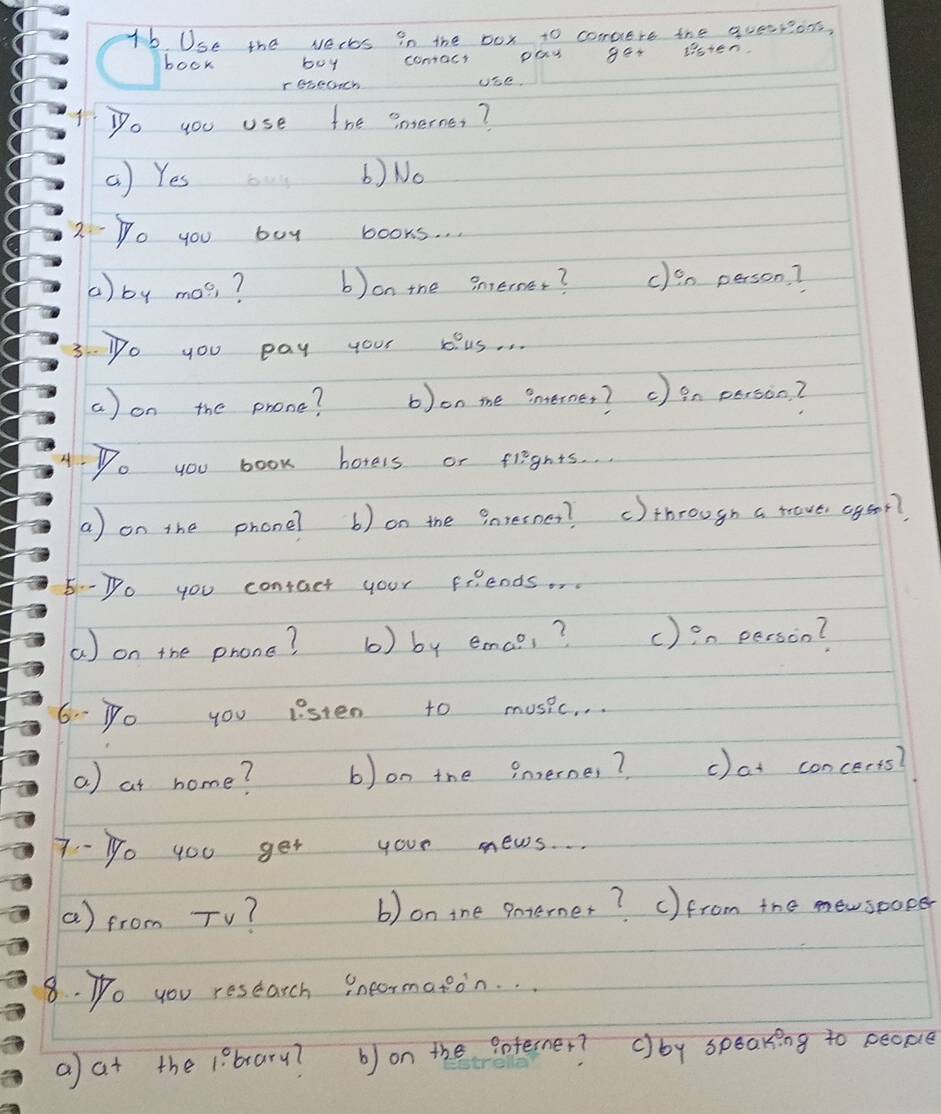 1b. Use the verbs in the box to complete the questions,
book buy contact pay get listen.
research use.
1. Do you use the internet?
a) Yes buy b) No
2.- Do you buy books...
a) by mail? b) on the internet? c) in person?
3.- Do you pay your bills...
a) on the phone? b) on the internet? c) in person?
4.- Do you book hotels or flights...
a) on the phone? b) on the internet? c) through a travel agent?
5.- Do you contact your friends...
a) on the phone? b) by email? c) in person?
6.- Do you listen to music...
a) at home? b) on the internet? c) at concerts?
7.- Do you get your news...
a) from TV? b) on the internet? c) from the newspaper
8.- Do you research informaion...
a) at the library? b) on the internet? c) by speaking to people
Estrella